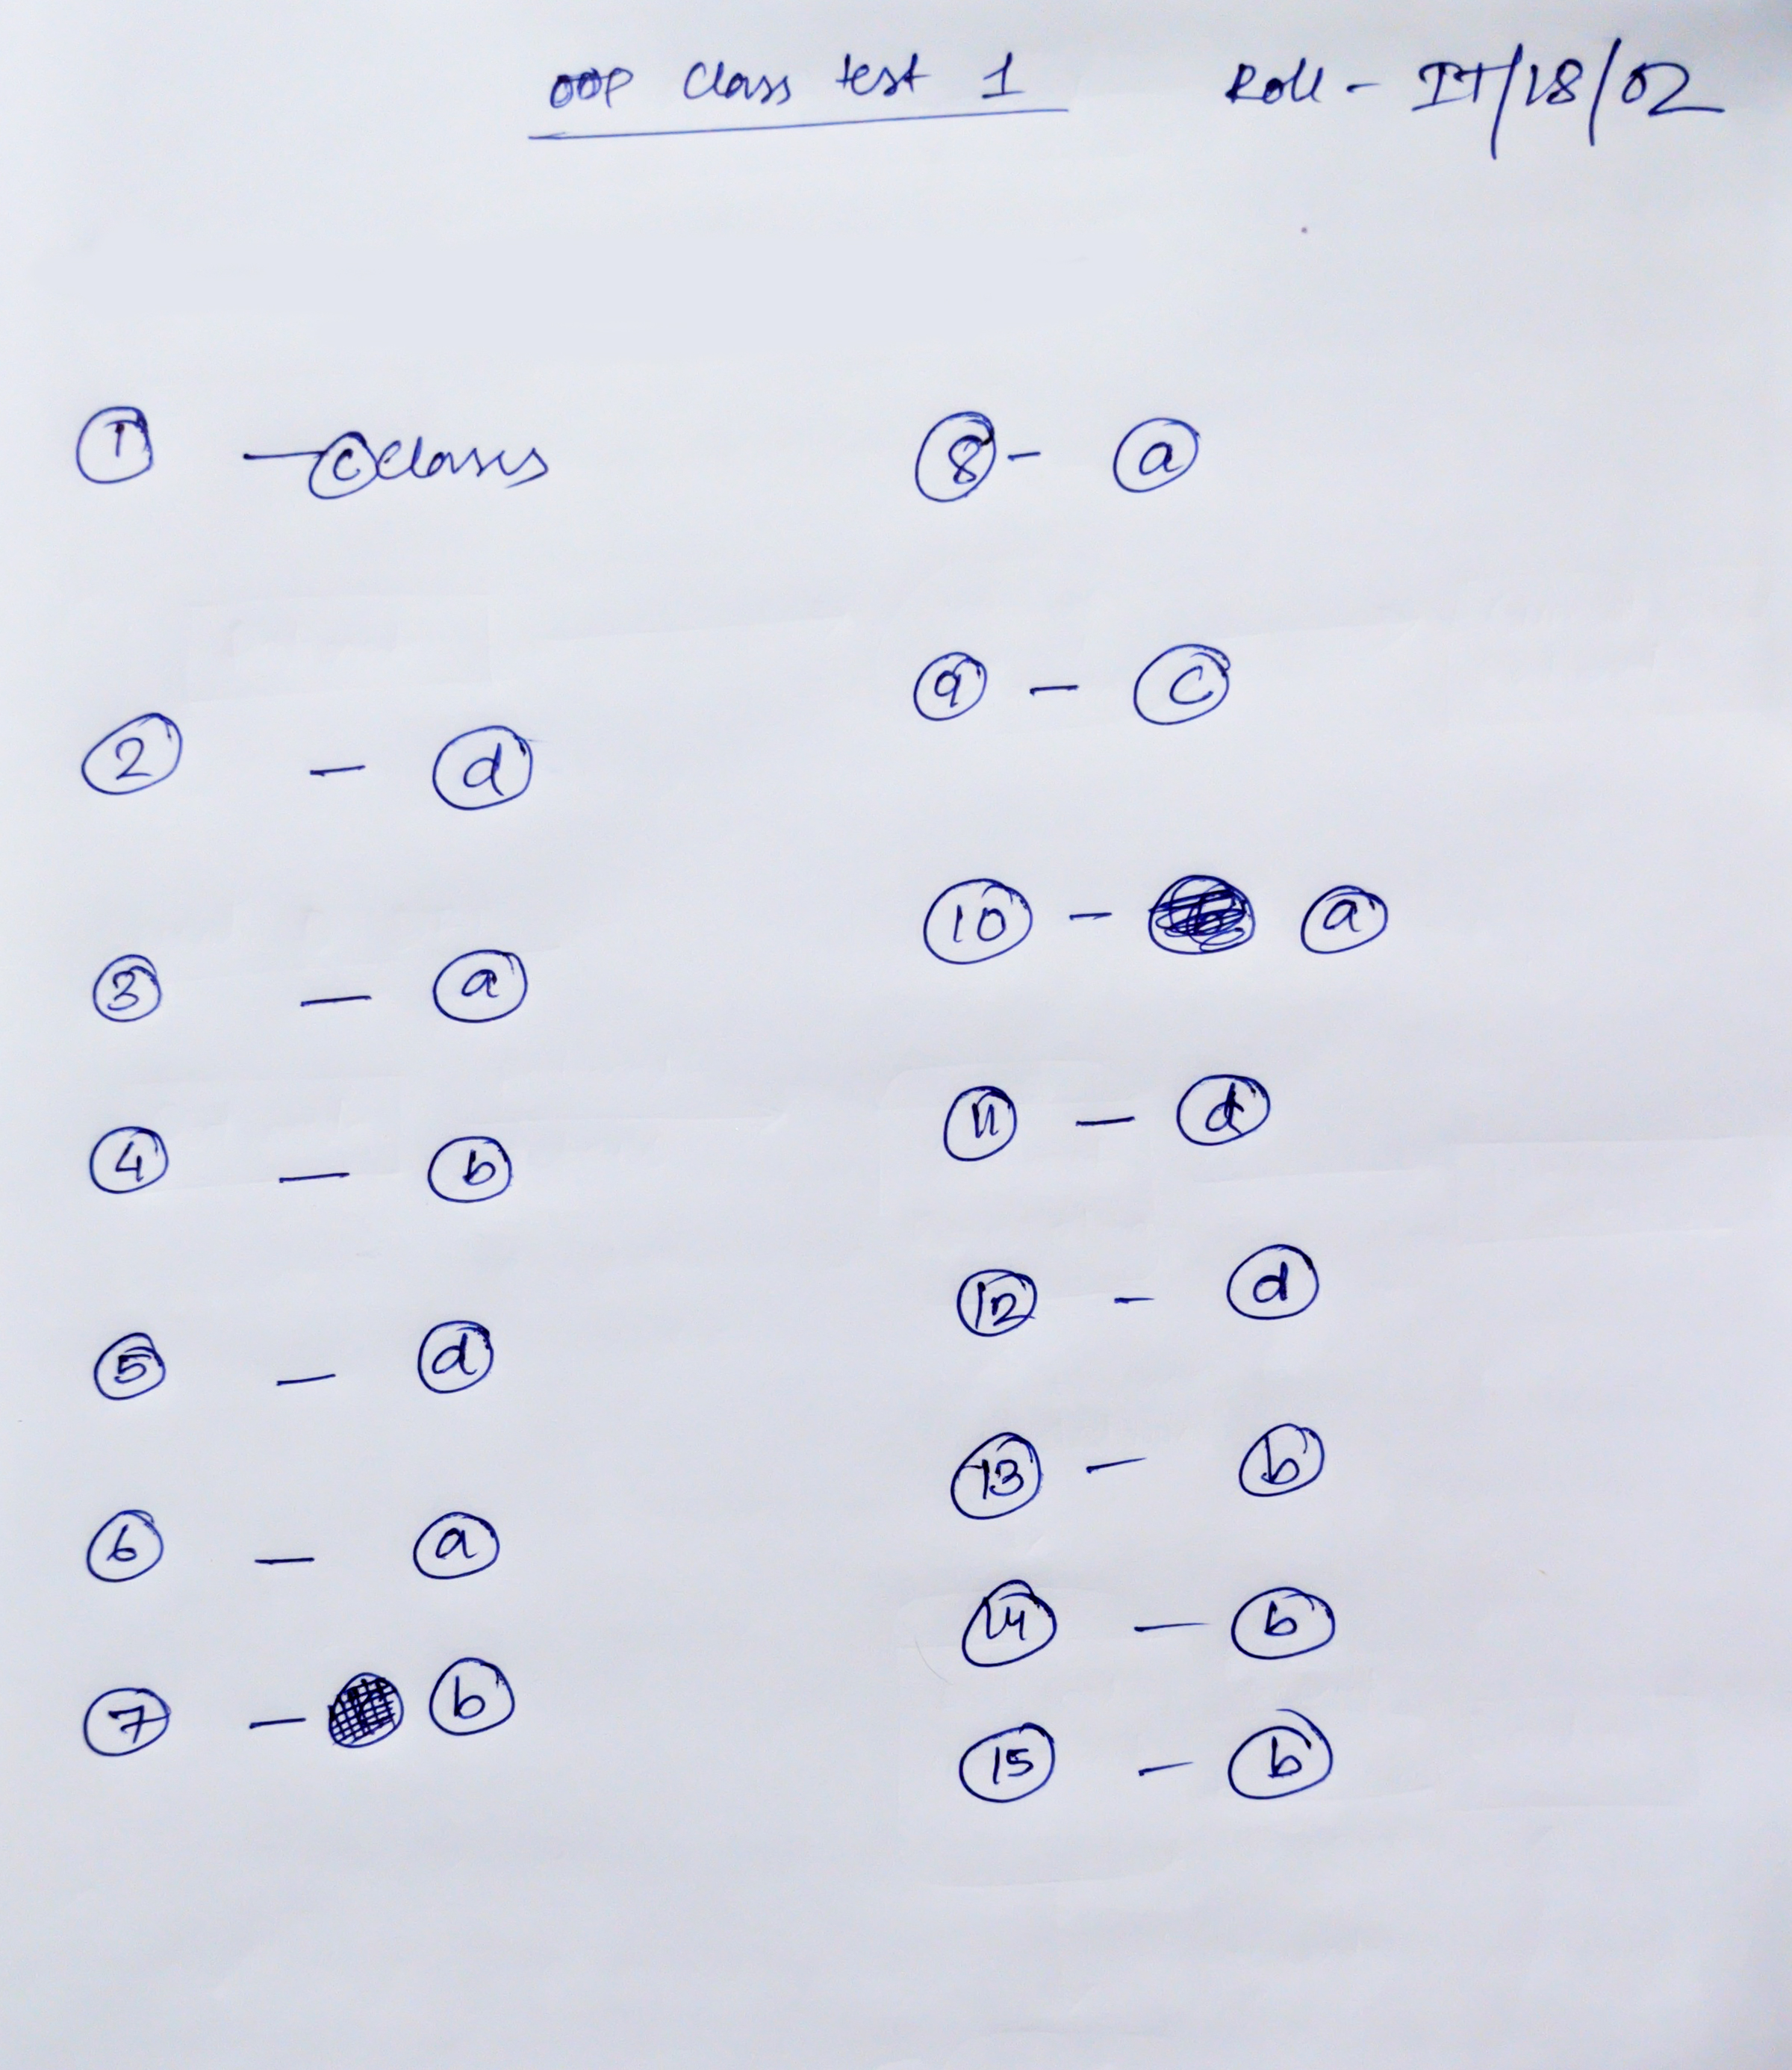 OOP Class test 1 Roll - IT/18/02
1 — c classes
2 — d
3 — a
4 — b
5 — d
6 — a
7 — b
8 - a
9 - c
10 - a
11 - d
12 - d
13 - b
14 - b
15 - b